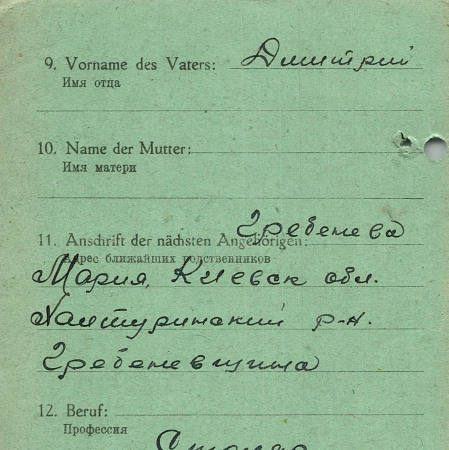 9. Vorname des Vaters: Дмитрий
Имя отца
10. Name der Mutter:
Имя матери
Гребенева
11. Anschrift der nächsten Angehörigen:
Адрес ближайших родственников
Мария, Киевск обл.
Халтуринский р-н.
Гребеневщина
12. Beruf:
Профессия